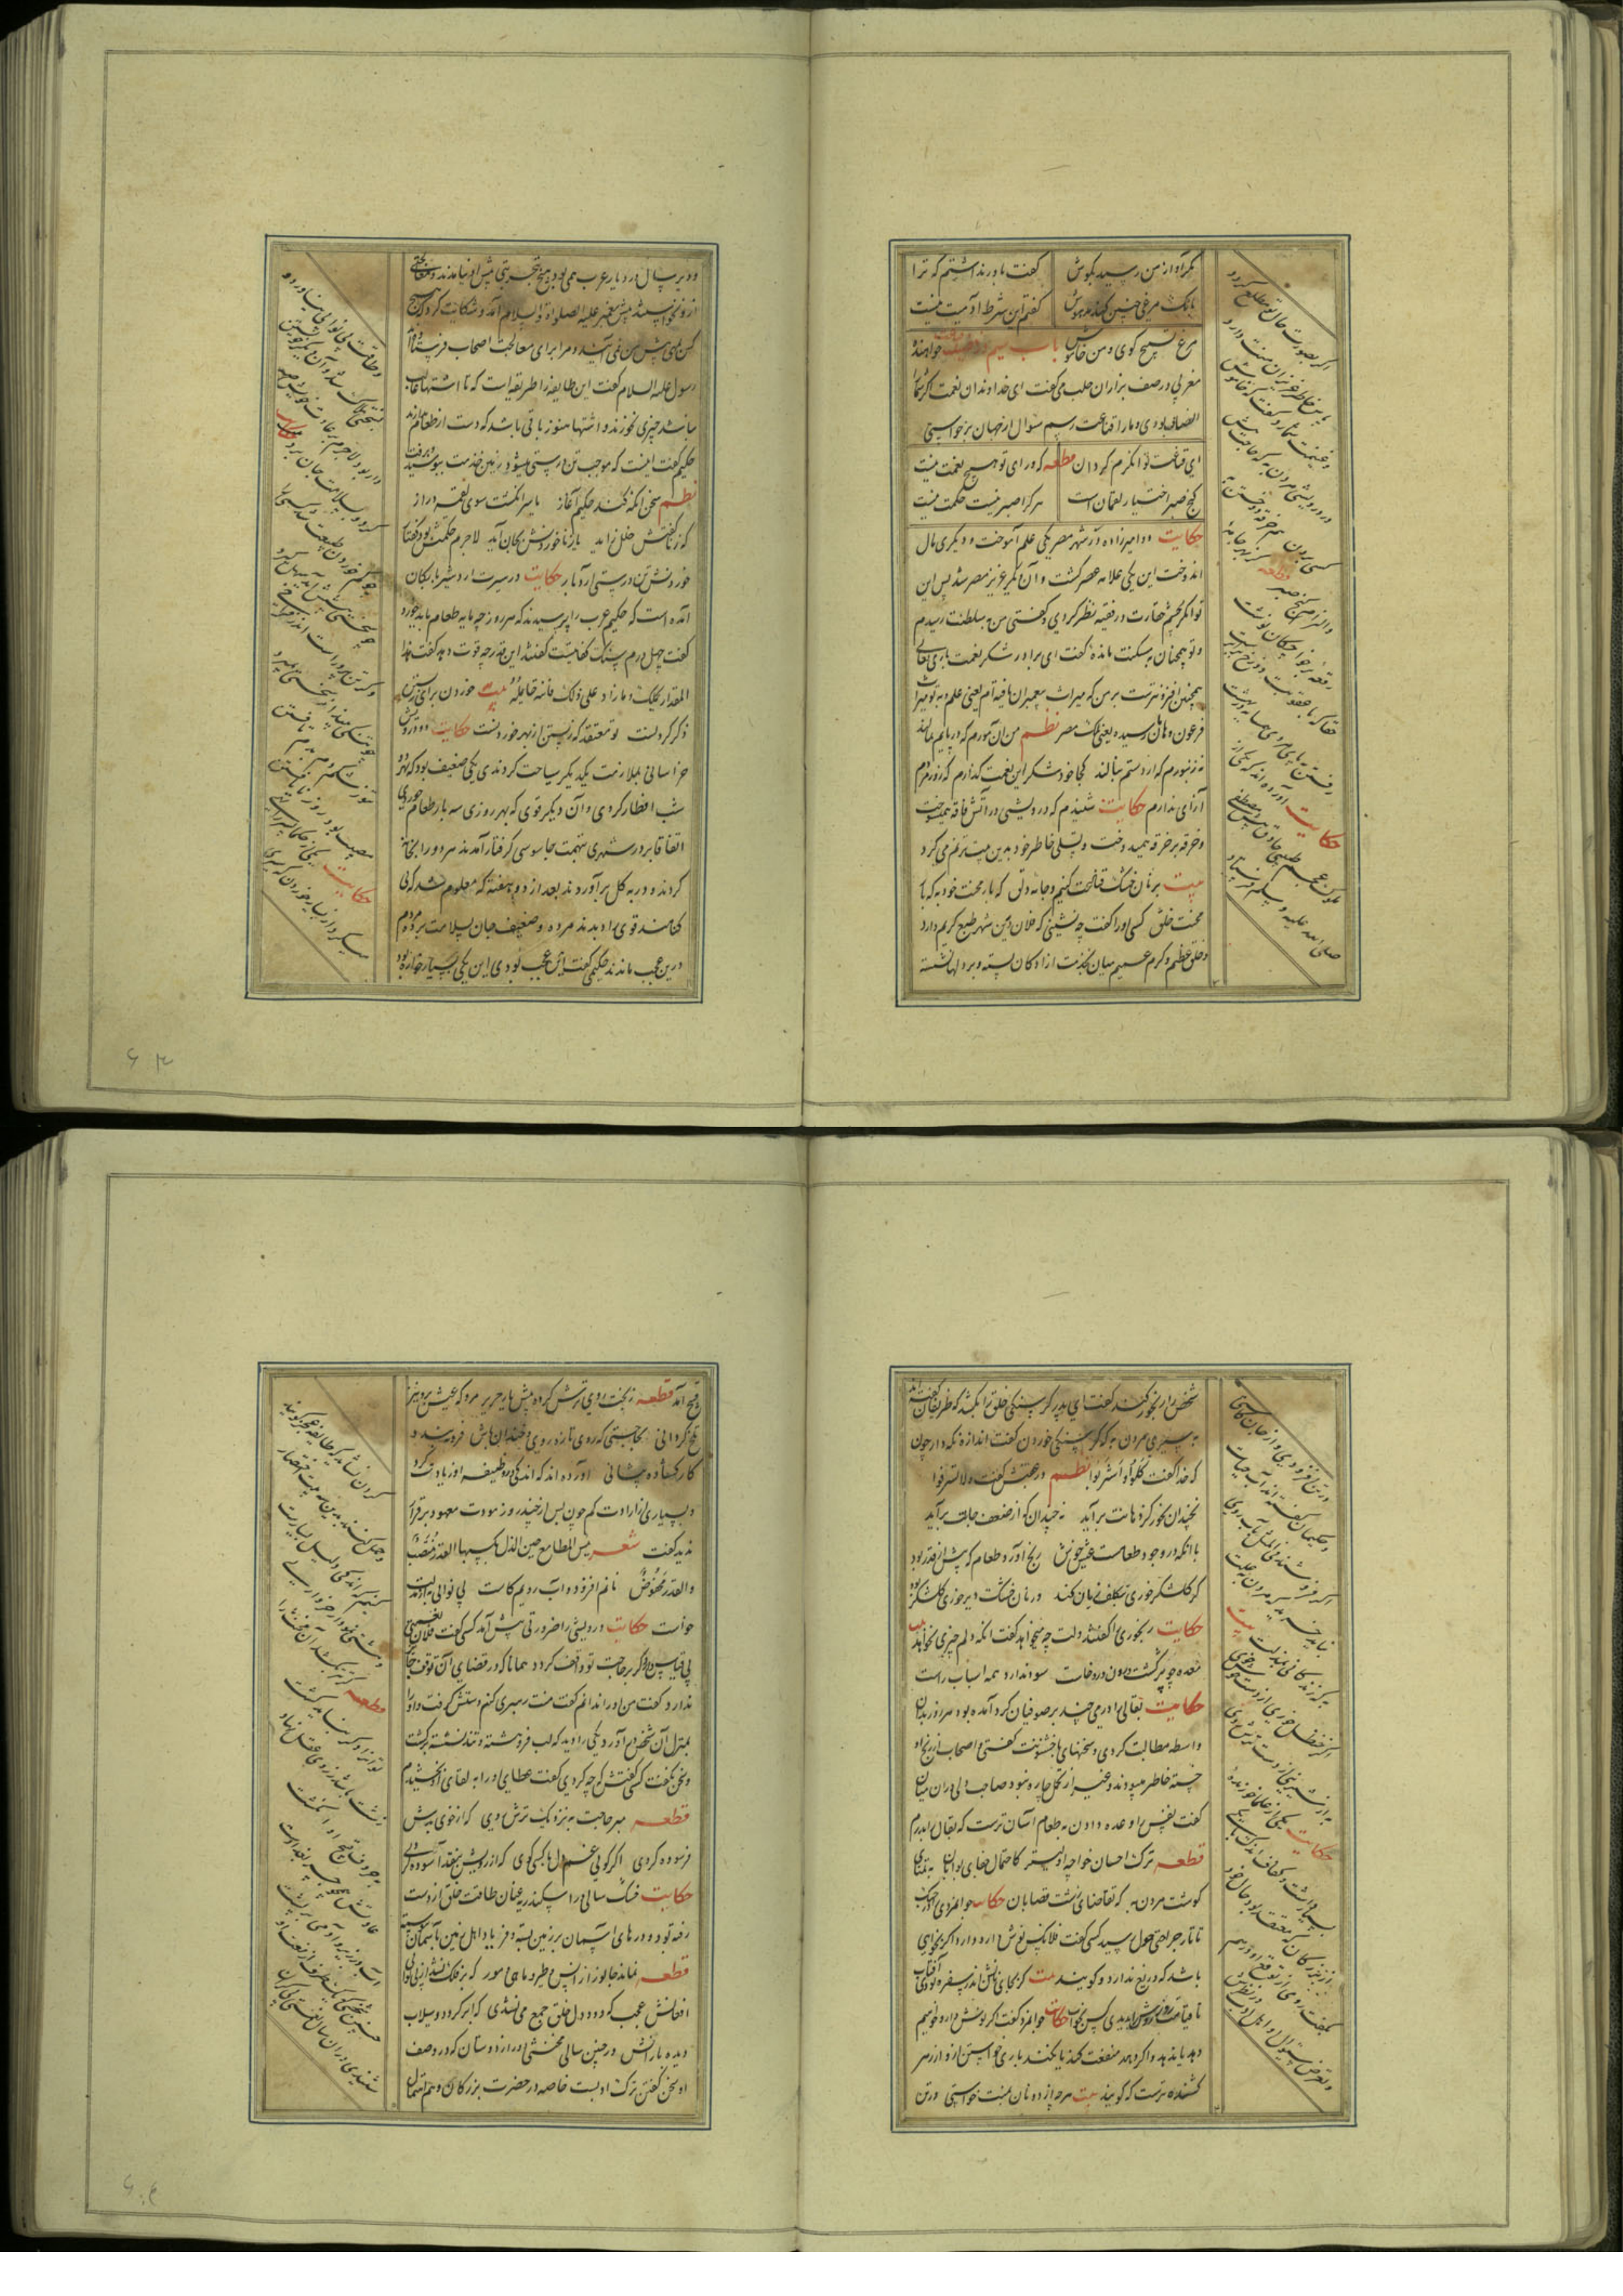 مگر آواز من رسید بگوش
گفت باور نداشتم که ترا
بانک مرغی چنین کند مدهوش
گفتم این شرط آدمیت نیست
مرغ تسبیح کوی و من خاموش باب سیم در فضیلت قناعت خواهنده
مغربی در صف بزازان حلب می کفت ای خداوندان نعمت اکر شما را
انصاف بودی و ما را قناعت رسم سوال از جهان برخواستی
ای قناعت توانکرم کردان قطعه که ورای تو هیچ نعمت نیست
کنج صبر اختیار لقمان است هر کرا صبر نیست حکمت نیست
حکایت دو امیرزاده در شهر مصر یکی علم آموخت و دیکری مال
اندوخت این یکی علامه عصر کشت و آن دکر عزیز مصر شد پس این
توانکر بچشم حقارت در فقیه نظر کردی و کفتی من بسلطنت رسیدم
و تو همچنان در مسکنت مانده کفت ای برادر شکر نعمت باری تعالی
همچنین افزونترست بر من که میراث پیغمبران یافته ام یعنی علم و بتو میراث
فرعون و هامان رسیده یعنی ملک مصر نظم من آن مورم که در پایم بمالند
نه زنبورم که از دستم بنالند کجا خود شکر این نعمت کذارم که زور مردم
آزاری ندارم حکایت شنیدم که درویشی در آتش فاقه میسوخت
و خرقه بر خرقه میدوخت و تسلی خاطر خود بدین بیت ترنم می کرد
بیت بر نان خشک قناعت کنیم و جامه دلق که بار محنت خود به که بار
محنت خلق کسی او را کفت چه نشینی که فلان درین شهر طبع کریم دارد
و خلق عظیم و کرم عمیم میان بخدمت آزادکان بسته و بر در دلها نشسته
اکر بصورت حال تو مطلع کردد
پاس خاطر عزیزان منت دارد
و غنیمت شمارد کفت که خاموش
در درویشی مردن به که حاجت پیش
کسی بردن هم رقعه دوختن به
و الزام کنج صبر قطعه کز بهر جامه
رقعه بر خواجکان نوشت
حقا که با عقوبت دوزخ برابرست
رفتن بپای مردی همسایه در بهشت
حکایت آورده اند که یکی از
ملوک عجم طبیبی حاذق پیش مصطفی
صلی الله علیه و سلم فرستاد
و دیر سال در دیار عرب می بود هیچ تجربتی پیش او نیامدند و معالجتی
از و نخواستند پیش پیغمبر علیه الصلواة و السلام آمد و شکایت کرد که هیچ
کس پیش من نمی آیند و مرا برای معالجت اصحاب فرستاده اند
رسول علیه السلام کفت این طایفه را طریقه است که تا اشتها غالب
نباشد چیزی نخورند و اشتها هنوز باقی باشد که دست از طعام بازدارند
حکیم کفت اینست که موجب تن درستی میشود زمین خدمت ببوسید و برفت
نظم سخن آنکه کند حکیم آغاز یا سر انکشت سوی لقمه دراز
که ز ناکفتش خلل زاید یا ز ناخوردنش بجان آید لاجرم حکمتش بود کفتار
خوردنش تن درستی آرد بار حکایت در سیرت اردشیر بابکان
آمده است که حکیم عرب را پرسیدند که هر روز چه مایه طعام باید خورد
کفت چهل درم سنک کفایتست کفتند این قدر چه قوت دهد کفت هذا
المقدار یحملک و ما زاد علی ذلک فانت حامله بیت خوردن برای زیستن
و ذکر کردنست تو معتقد که زیستن از بهر خوردنست حکایت دو درویش
خراسانی بملازمت یکدیکر سیاحت کردندی یکی ضعیف بود که بهر دو
شب افطار کردی و آن دیکر قوی که بهر روزی سه بار طعام خوردی
اتفاقا بر در شهری بتهمت جاسوسی کرفتار آمدند هر دو را بخانه
کردند و در به کل برآوردند بعد از دو هفته که معلوم شد که بی
کناهند قوی را دیدند مرده و ضعیف جان بسلامت برده مردم
درین عجب ماندند حکیمی کفت این عجب نبودی این یکی بسیار خواره بود
و طاقت بی نوائی نیاورد و
بسختی هلاک شد و آن دکر خویشتن
دار بود لاجرم بر عادت خویش صبر
کرد و بسلامت جان برد نظم
چو کم خوردن طبیعت شد کسی را
چو سختی پیشش آید سهل کیرد
و کر تن پرورست اندر فراخی
چو تنکی بیند از سختی بمیرد
تنور شکم دم بدم تافتن
مصیبت بود روز نایافتن
حکایت یکی از حکما پسر را نهی
میکرد از بسیار خوردن که سیری
شخص را رنجور کند کفت ای پدر کرسنکی خلق را بکشد که ظریفان کفته اند
به سیری مردن به که کرسنکی خوردن کفت اندازه نکه دار چون
که خدا کفت کلوا واشربوا نظم در عقبش کفت ولا تسرفوا
نچندان بخور کز دهانت برآید نه چندان که از ضعف جانت برآید
با آنکه در وجود طعامست عیش خوش رنج آورد طعام که بیش از قدر بود
کر کلشکر خوری بتکلف زیان کند ور نان خشک دیر خوری کلشکر بود
حکایت رنجوری را کفتند دلت چه میخواهد کفت آنکه دلم چیزی نخواهد بیت
معده چو پر کشت و درون درد خاست سود ندارد همه اسباب راست
حکایت بقالی را درمی چند بر صوفیان کرد آمده بود هر روز بدان
واسطه مطالبت کردی و سخنهای باخشونت کفتی و اصحاب از رنج او
خسته خاطر میبودند و غیر از تحمل چاره نبود صاحب دلی در آن میان
کفت نفس را وعده دادن به طعام آسان ترست که بقال را بدرم
قطعه ترک احسان خواجه اولیتر کاحتمال جفای بوابان به تمنای
کوشت مردن به که تقاضای زشت قصابان حکایت جوانمردی را در جنک
تاتار جراحتی هول رسید کسی کفت فلان کس نوش دارو دارد اکر بخواهی
باشد که دریغ ندارد و کویند بیت کر بجای نانش اندر سفره بودی آفتاب
تا قیامت روز روشن کس ندیدی جز بخواب حکایت جوانمرد کفت اکر نوش دارو خواهم
دهد یا ندهد و اکر دهد منفعت کند یا نکند باری خواستن از و زهر
کشنده ترست که کویند بیت هر چه از دونان بمنت خواستی در تن
در تن افزودی و از جان کاستی
و حکیمان کفته اند آب حیات
اکر فروشند فی المثل بآب روی
نباید خرید که مردن بعلت
به که زندکانی بمذلت بیت
اکر حنظل خوری از دست خوش خوی
به از شیرینی از دست ترش روی
حکایت یکی از علما خورنده
بسیار داشت و کفاف اندک با یکی
از بزرکان که معتقد بود حال خود
بکفت روی از توقع او درهم
و تعرض سؤال از اهل ادب در نظرش
قبیح آمد قطعه ز بخت روی ترش کرده پیش یار عزیز مرو که عیش برو نیز
تلخ کردانی بحاجتی که روی تازه روی و خندان باش فرو نبندد
کار کشاده پیشانی آورده اند که اندکی در وظیفه او زیادت کرد
و بسیاری از ارادت کم چون پس از چند روز مودت معهود برقرار
ندید کفت شعر بئس المطاعم حین الذل تکسبها القدر منتصب
والقدر مخفوض نانم افزود و آب رویم کاست بی نوائی به از مذلت
خواست حکایت درویشی را ضرورتی پیش آمد کسی کفت فلان نعمتی
بی قیاس دارد اکر بر حاجت تو واقف کردد همانا که در قضای آن توقف جایز
ندارد کفت من او را ندانم کفت منت رهبری کنم دستش کرفت و او را
بمنزل آن شخص درآورد یکی را دید که لب فروهشته و تند نشسته برکشت
و سخن نکفت کسی کفتش که چه کردی کفت عطای او را به لقای او بخشیدم
قطعه مبر حاجت به نزدیک ترش روی که از خوی بدش
فرسوده کردی اکر کوئی غم دل با کسی کوی که از رویش بنقد آسوده کردی
حکایت خشک سالی در اسکندریه عنان طاقت خلق از دست
رفته بود و درهای آسمان بر زمین بسته و فریاد اهل زمین بآسمان پیوسته
قطعه نماند جانور از انس و طیر و ماهی و مور که بر فلک نشد از بی مرادی
افغانش عجب که دود دل خلق جمع می نشدی که ابر کردد و سیلاب
دیده بارانش در چنین سالی مخنثی دور از دوستان که در وصف
او سخن کفتن ترک ادبست خاصه در حضرت بزرکان و هم اهمال
کران نشاید که طایفه بر عجز کوینده
و حمل کنند بدین دو بیت اختصار
کنیم که اندکی دلیل بسیارست
و مشتی نمودار خرواری
قطعه کر تتر بکشد آن مخنث را
تتری را دکر نباید کشت
چند باشد چو جسر بغدادش
آب در زیر و آدمی در پشت
چنین شخصی که یک طرف از نعت او
شنیدی درین سال نعمتی بیکران